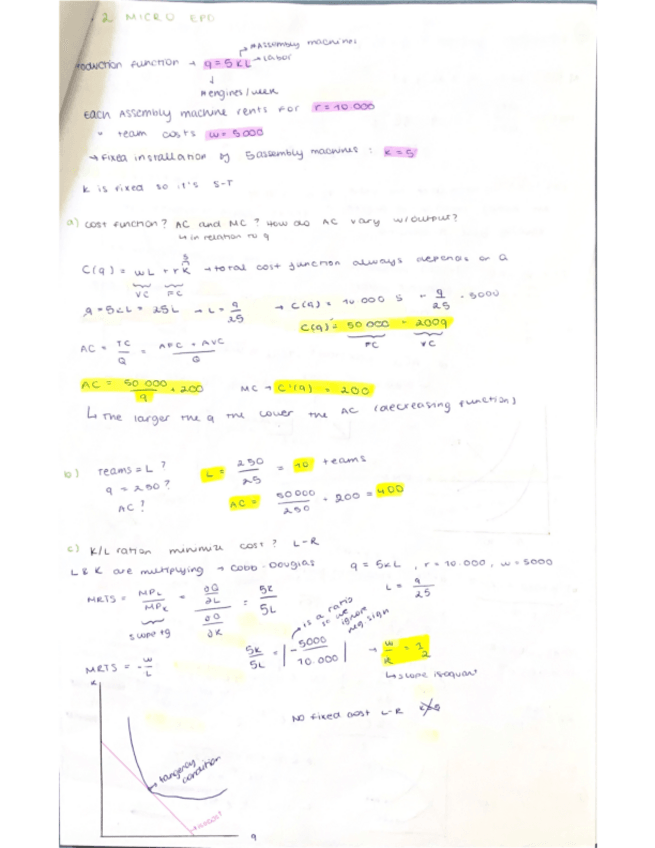 2. MICRO EPD
#Assembly machines
roduction function → q = 5KL → Labor
↓
# engines / week
Each Assembly machine rents for r = 10.000
" team costs w = 5000
→ Fixed installation of 5 assembly machines : K = 5
K is fixed so it's S-T
a) cost function? AC and MC? How do AC vary w/output?
↳ in relation to q
5
C(q) = wL + rK → total cost function always depends or Q
VC FC
q = 5KL = 25L → L = q/25 → C(q) = 10 000 · 5 + q/25 · 5000
C(q) = 50 000 + 200q
FC VC
AC = TC/Q = AFC + AVC/Q
AC = 50 000/q + 200 MC → C'(q) = 200
↳ The larger the q the lower the AC (decreasing function)
b) Teams = L? L = 250/25 = 10 teams
q = 250?
AC? AC = 50000/250 + 200 = 400
c) K/L ration minimize cost? L-R
L & K are multiplying → Cobb-Douglas q = 5KL, r = 10.000, w = 5000
MRTS = MPL/MPK = ∂Q/∂L / ∂Q/∂K = 5K/5L L = q/25
slope
→ is a ratio so we ignore neg. sign
5K/5L = |- 5000/10.000| → = 1/2
↳ slope isoquant
MRTS = - w/L
No fixed cost L-R
K
tangency condition
isocost
q